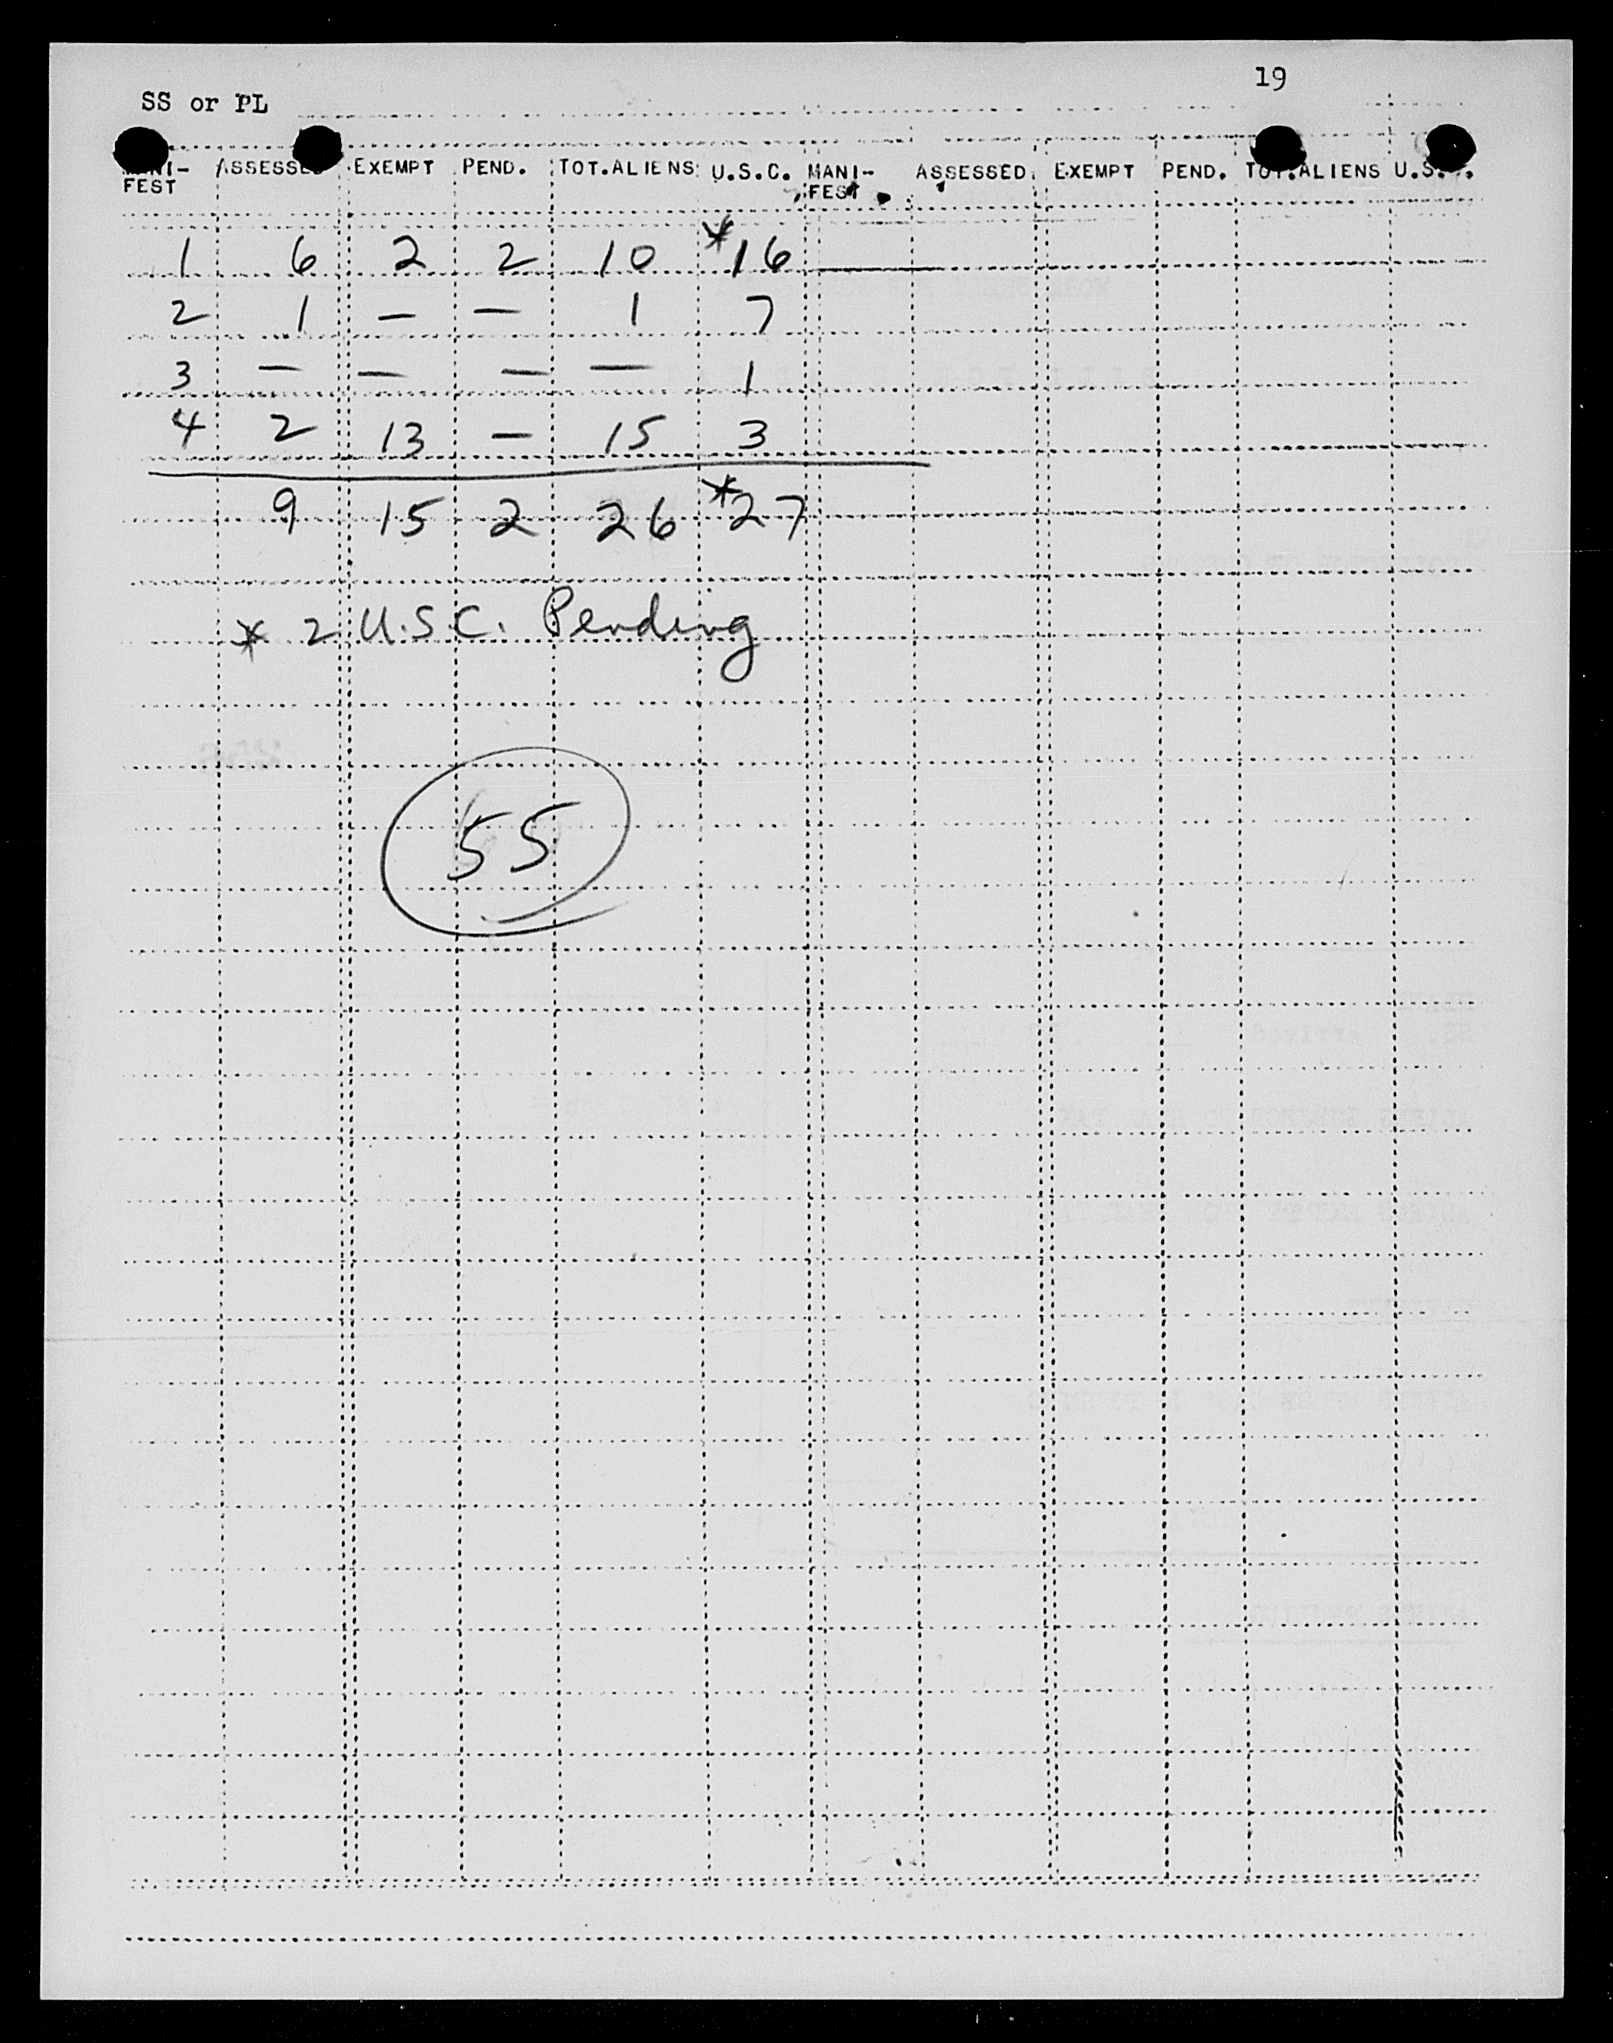 19
SS or PL
MANI- ASSESSED EXEMPT PEND. TOT.ALIENS U.S.C. MANI- ASSESSED EXEMPT PEND. TOT.ALIENS U.S.C.
FEST FEST
1 6 2 2 10 *16
2 1 — — 1 7
3 — — — — 1
4 2 13 — 15 3
9 15 2 26 *27
* 2 U.S.C. Pending
55